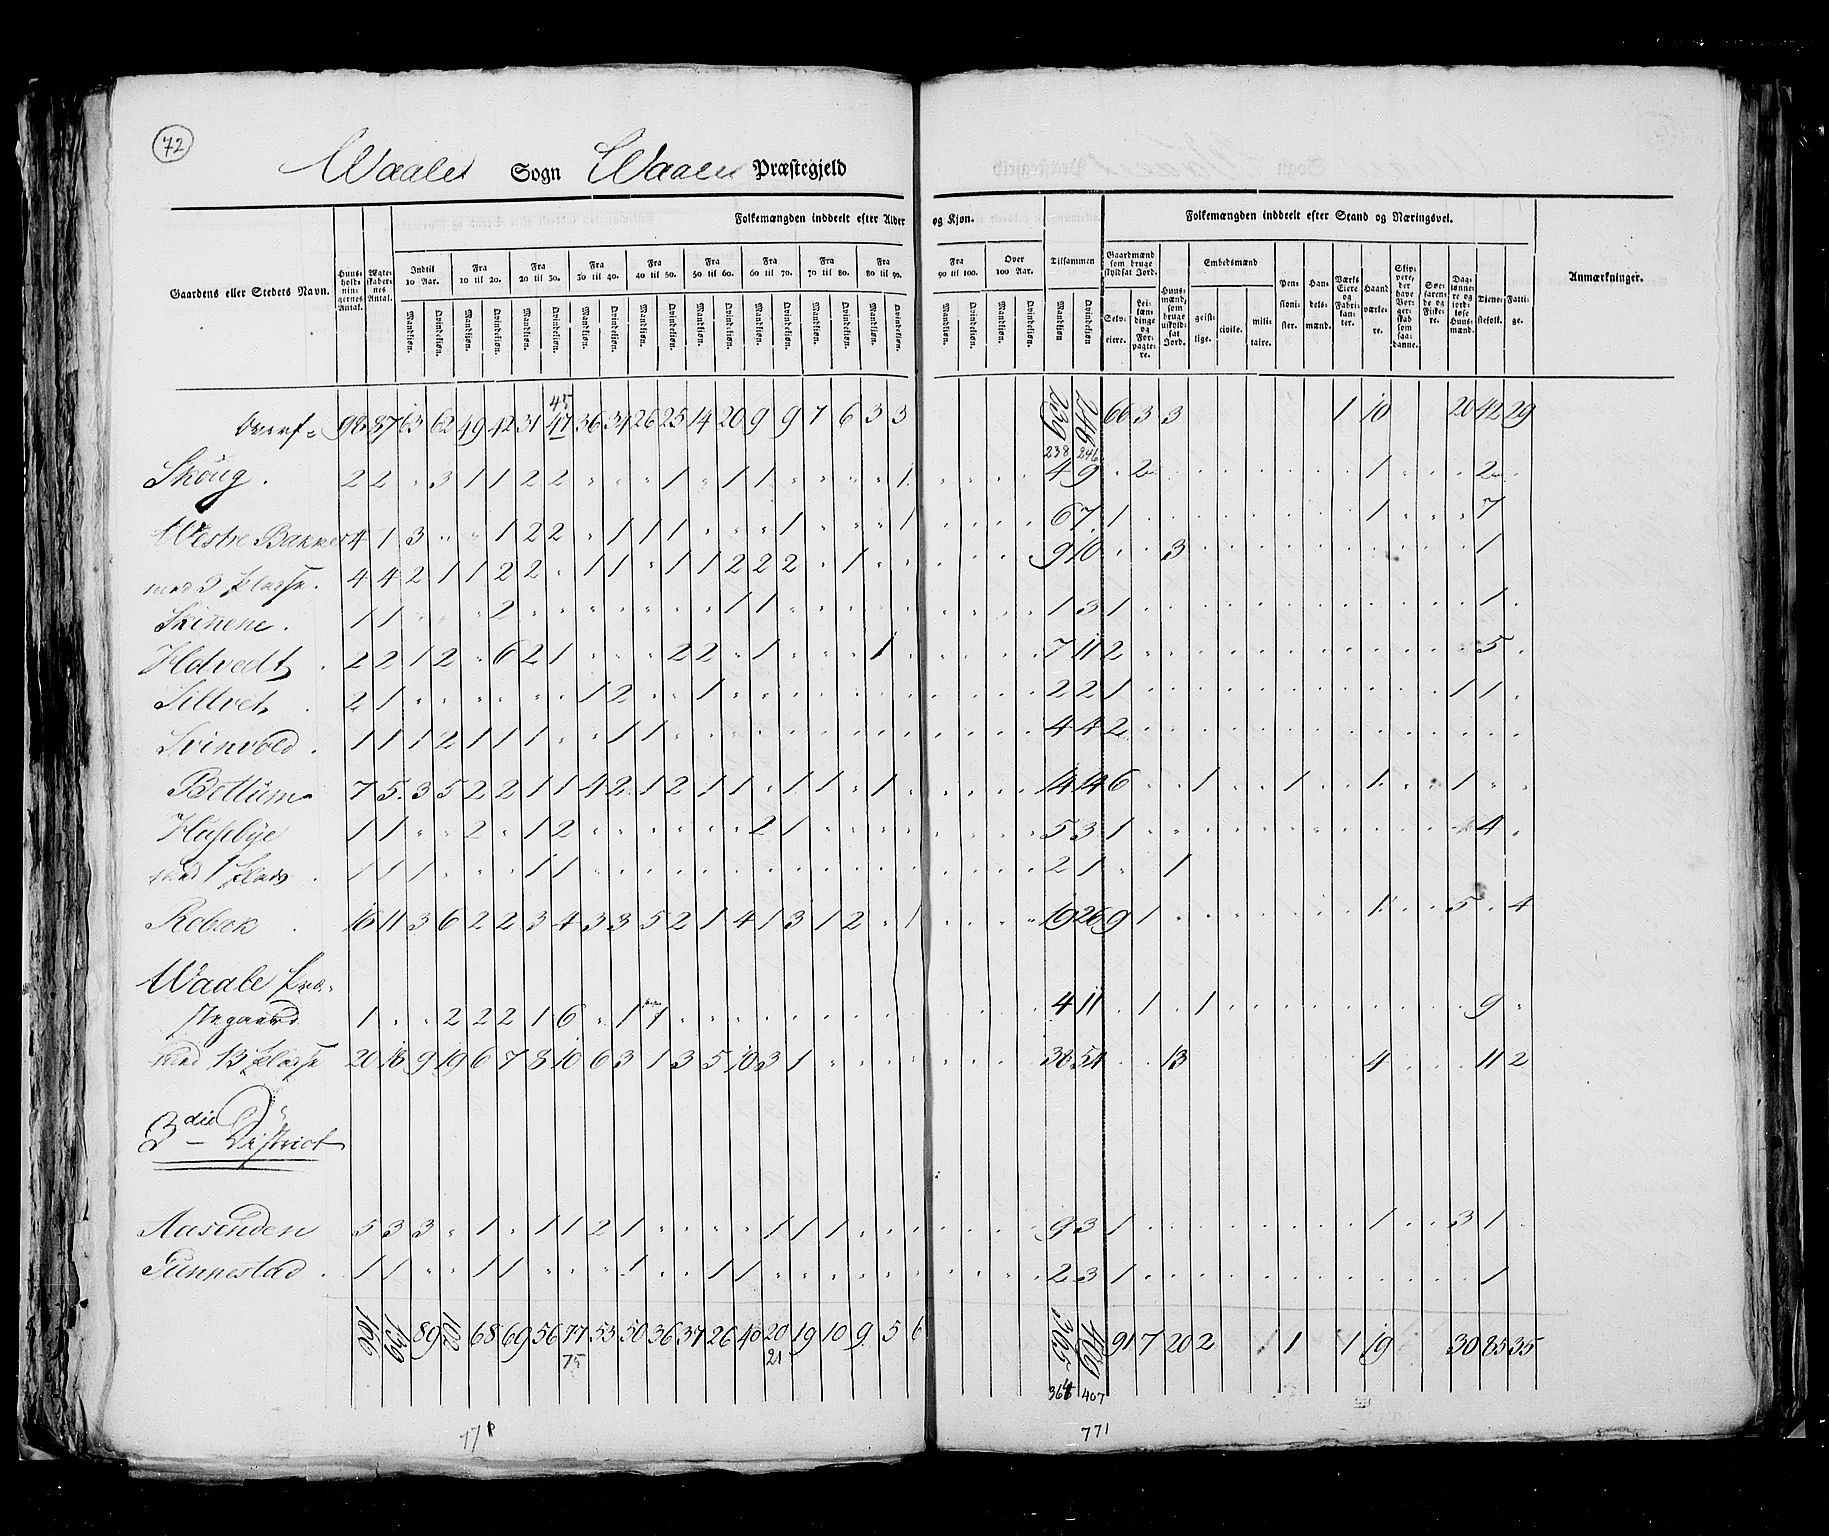 72
Waale Sogn Waale Præstegjeld
Folkemængden inddeelt efter Alder og Kjøn. Folkemængden inddeelt efter Stand og Næringsvei.
Gaardens eller Stedets Navn. Huusholdningernes Antal. Ægteskabernes Antal. Indtil 10 Aar. Fra 10 til 20. Fra 20 til 30. Fra 30 til 40. Fra 40 til 50. Fra 50 til 60. Fra 60 til 70. Fra 70 til 80. Fra 80 til 90. Fra 90 til 100. Over 100 Aar. Tilsammen Gaardmænd som bruge skyldsat Jord. Huusmænd, som bruge uskyldsat Jord. Embedsmænd Pensionister. Handelsmænd. Værks Eiere og Fabrikanter. Haandværkere. Skippere, der have Borgerskab som saadanne. Søefarende og Fiskere. Dagslønnere og jordløse Huusmænd. Tjenestefolk. Fattige. Anmærkninger.
Mandkjøn. Qvindekjøn. Mandkjøn. Qvindekjøn. Mandkjøn. Qvindekjøn. Mandkjøn. Qvindekjøn. Mandkjøn. Qvindekjøn. Mandkjøn. Qvindekjøn. Mandkjøn. Qvindekjøn. Mandkjøn. Qvindekjøn. Mandkjøn. Qvindekjøn. Mandkjøn. Qvindekjøn. Mandkjøn. Qvindekjøn. Mandkjøn Qvindekjøn Selveiere. Leilændinge og Forpagtere. geistlige. civile. militaire.
45
98 87 63 62 49 42 31 47 36 34 26 25 14 20 9 9 7 6 3 3 239 246 66 3 3 1 10 20 42 29
238 246
Skoug. 2 2 3 1 1 2 2 1 1 1 1 4 9 2 1 2
Westre Bakke 4 1 3 1 2 2 1 1 1 1 1 6 7 1 1 7
med 3 Pladse. 4 4 2 1 1 2 2 1 1 1 1 2 2 2 1 9 10 3 1
Skinene. 1 1 2 1 1 1 3 1 1
Holvedt. 2 2 1 2 6 2 1 2 2 1 1 7 11 2 5
Siltvet. 2 1 1 2 1 2 2 1 1 1
Svinvold. 1 1 1 2 1 1 1 1 1 4 4 2
Bettum 7 5 3 5 2 2 1 1 4 2 1 2 1 1 1 1 1 14 14 6 1 1 1 1
Husebye 1 1 2 1 2 2 1 5 3 1 4
med 1 Plads. 1 1 1 1 1 2 1 1
Robæk. 16 11 3 6 2 2 3 4 3 3 5 2 1 4 1 3 1 2 1 19 26 9 1 1 5 4
Waale Præ-
stegaard 1 2 2 2 1 6 1 1 4 11 1 1 9
med 13 Pladse 20 16 9 19 6 7 8 10 6 3 1 3 5 10 3 1 38 54 13 4 11 2
3die District
Aasenden 5 3 3 1 1 1 2 1 1 1 1 9 3 1 1 3 1
Gunnestad. 1 1 1 1 1 1 1 2 3 1 1
166 139 89 68 69 56 77 53 50 36 37 26 40 20 19 10 9 5 6 365 409 91 7 20 2 1 1 19 30 85 35
75 21 364 407
771